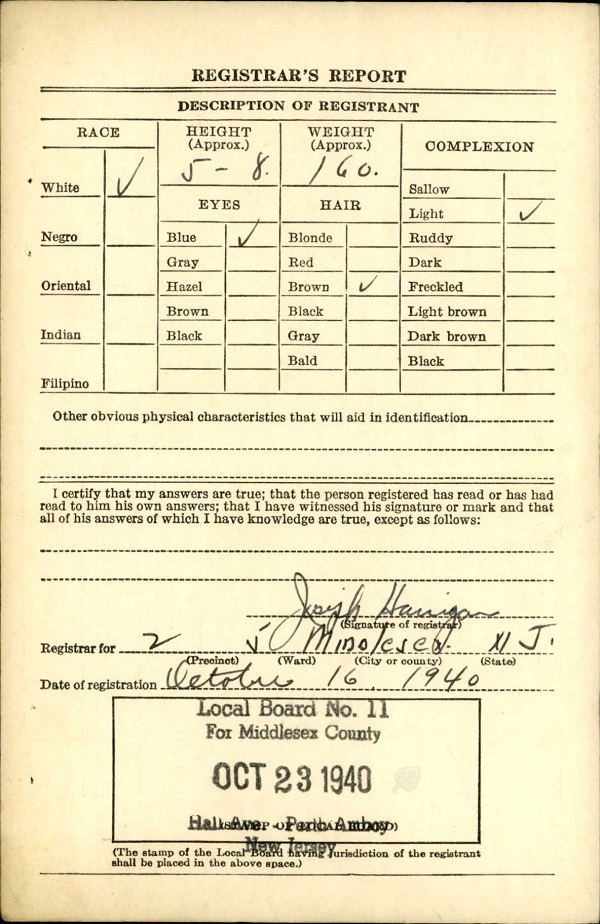 REGISTRAR'S REPORT
DESCRIPTION OF REGISTRANT
RACE
HEIGHT
(Approx.)
WEIGHT
(Approx.)
COMPLEXION
5-8.
160.
White ✓
Negro
Oriental
Indian
Filipino
EYES
Blue ✓
Gray
Hazel
Brown
Black
HAIR
Blonde
Red
Brown ✓
Black
Gray
Bald
Sallow
Light ✓
Ruddy
Dark
Freckled
Light brown
Dark brown
Black
Other obvious physical characteristics that will aid in identification
I certify that my answers are true; that the person registered has read or has had
read to him his own answers; that I have witnessed his signature or mark and that
all of his answers of which I have knowledge are true, except as follows:
Joseph
(Signature of registrar)
Registrar for 2 5 Middlesex N J.
(Precinct) (Ward) (City or county) (State)
Date of registration October 16, 1940
Local Board No. 11
For Middlesex County
OCT 23 1940
Hall Ave. - Perth Amboy
(STAMP OF LOCAL BOARD)
New Jersey
(The stamp of the Local Board having jurisdiction of the registrant
shall be placed in the above space.)